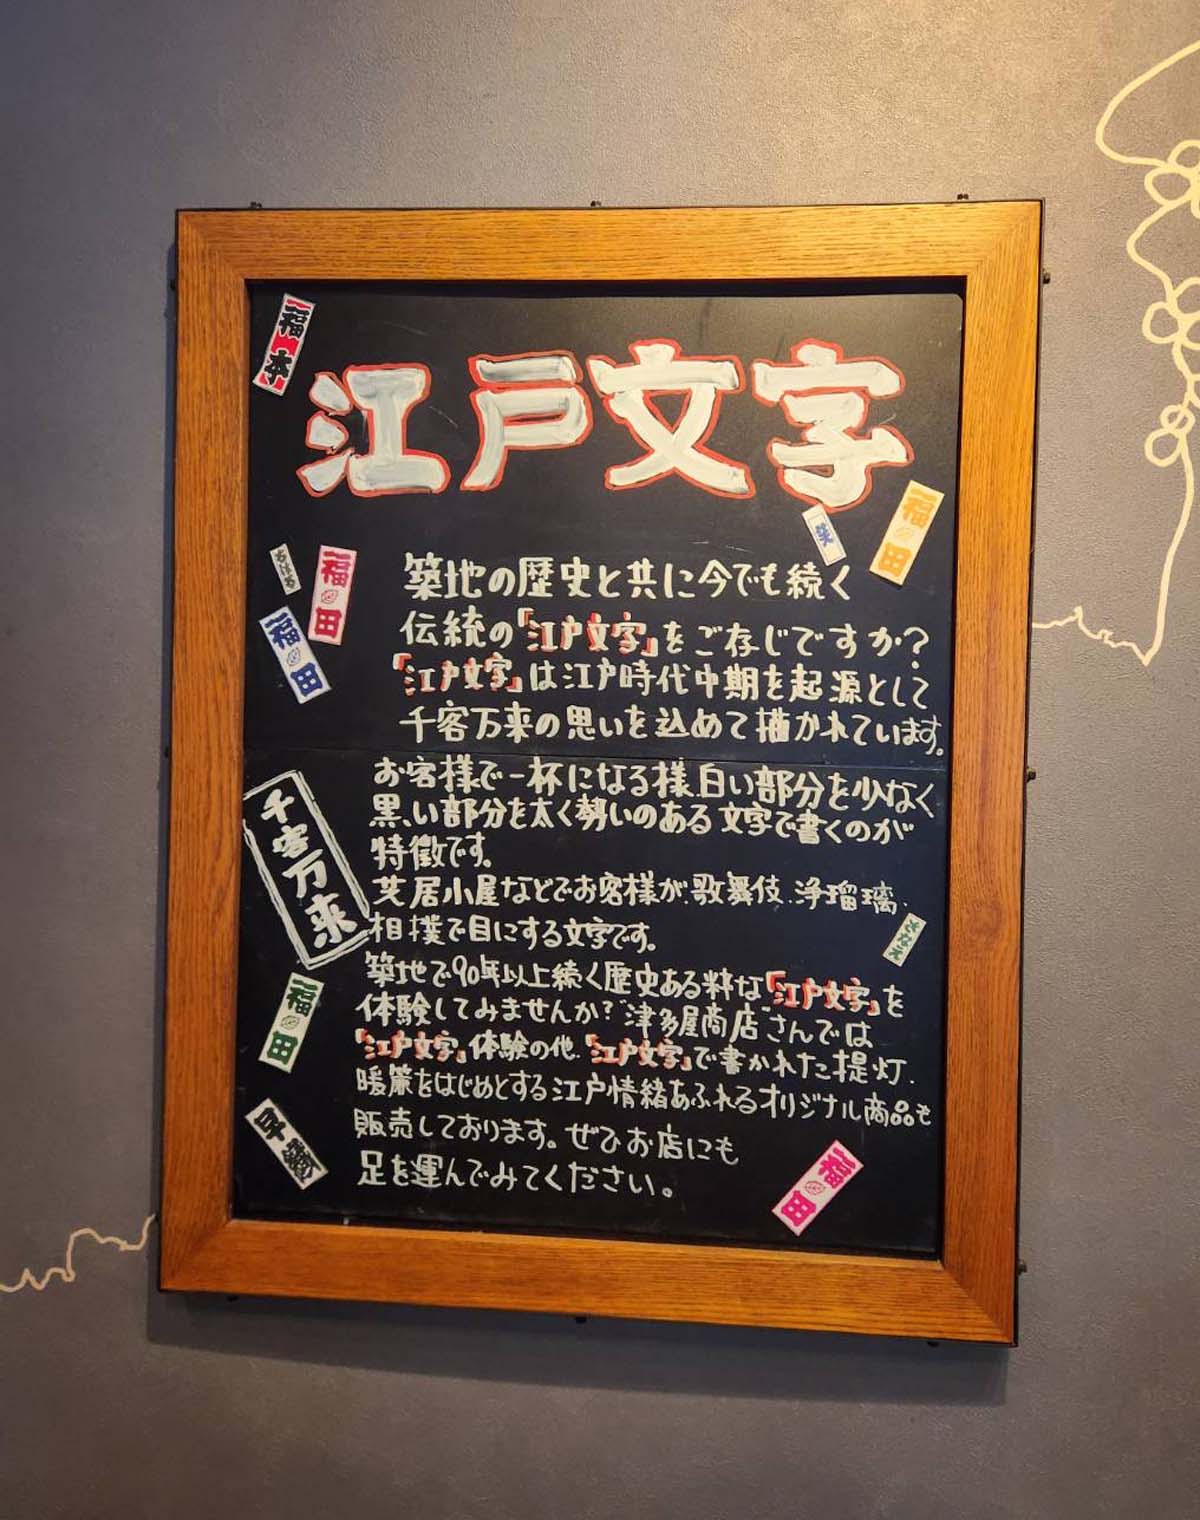 福本
江戸文字
福田
笑
ちはる
福田
福田
築地の歴史と共に今でも続く
伝統の「江戸文字」をご存じですか?
「江戸文字」は江戸時代中期を起源として
千客万来の思いを込めて描かれています。
お客様で一杯になる様、白い部分を少なく
黒い部分を太く勢いのある文字で書くのが
特徴です。
芝居小屋などでお客様が、歌舞伎、浄瑠璃、
相撲で目にする文字です。
千客万来
築地で90年以上続く歴史ある粋な「江戸文字」を
体験してみませんか?"津多屋商店"さんでは
「江戸文字」体験の他、「江戸文字」で書かれた提灯、
暖簾をはじめとする江戸情緒あふれるオリジナル商品も
販売しております。ぜひお店にも
足を運んでみてください。
福田
福田